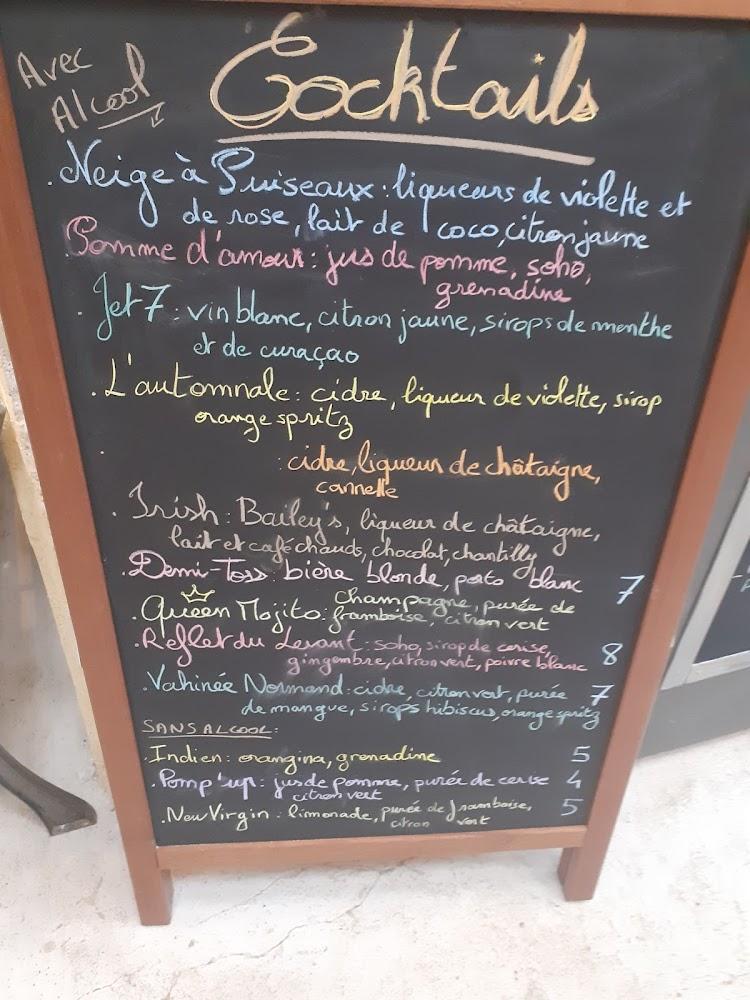 Avec
Alcool
Cocktails
. Neige à Puiseaux : liqueurs de violette et
de rose, lait de coco, citron jaune
. Pomme d'amour : jus de pomme, soho,
grenadine
. Jet 7 : vin blanc, citron jaune, sirops de menthe
et de curaçao
. L'automnale : cidre, liqueur de violette, sirop
orange spritz
. : cidre, liqueur de châtaigne,
cannelle
. Irish : Bailey's, liqueur de châtaigne,
lait et café chauds, chocolat, chantilly
. Demi-Toss : bière blonde, porto blanc 7
. Queen Mojito : champagne, purée de
framboise, citron vert
. Reflet du Levant : soho, sirop de cerise, 8
gingembre, citron vert, poivre blanc
. Vahinée Normand : cidre, citron vert, purée 7
de mangue, sirops hibiscus, orange spritz
SANS ALCOOL :
. Indien : orangina, grenadine 5
. Pomp'up : jus de pomme, purée de cerise 4
citron vert
. New Virgin : limonade, purée de framboise, 5
citron vert